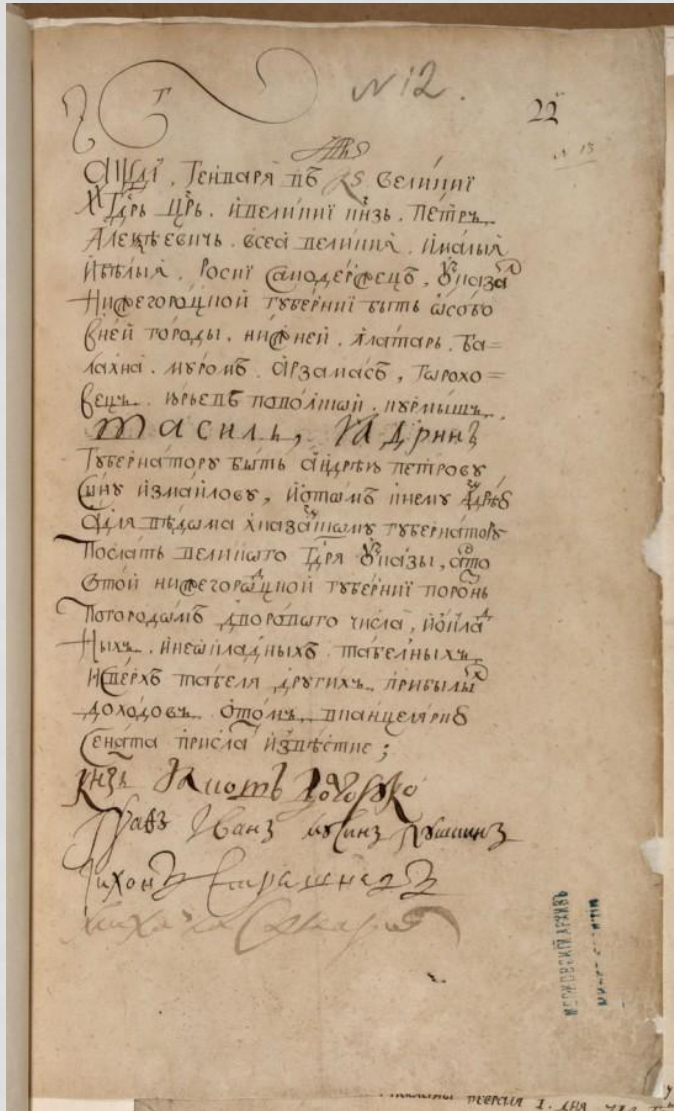 N 12.
22
N 13
҂АѰДІ, Генваря въ КЅ Великиї
Гдрь Црь. и Великиї Кнзь. Петръ
Алеѯѣевичь. всеа великия. и малыя
и бѣлыя. Росиї Самодержецъ, Указал
Нижегороцкой губерниї быть ѡсобо
в ней городы. нижней. алатарь. ба=
лахна. муромъ. арзамасъ, горохо=
вецъ. юрьевъ поволской. курмышъ.
василь, Ядринъ
Губернатору быть андрѣю петрову
Сыну измайлову, и ѡтомъ к нему
а для вѣдома к губернатору
Послать великого Гдря Указы, а что
Стой нижегороцкой губерниї порознь
По городомъ дворового числа, и ѡклад
ныхъ. и неѡкладныхъ табелныхъ
и сверхъ табеля другихъ прибылых
доходовъ ѡтомъ. в канцелярию
Сената присла извѣстие;
Кнзь Яковъ Долгоруко
Графъ Иванъ мусинъ пушкинъ
Тихонъ Стрешневъ
михаила Самарин
МОСКОВСКІЙ АРХИВЪ